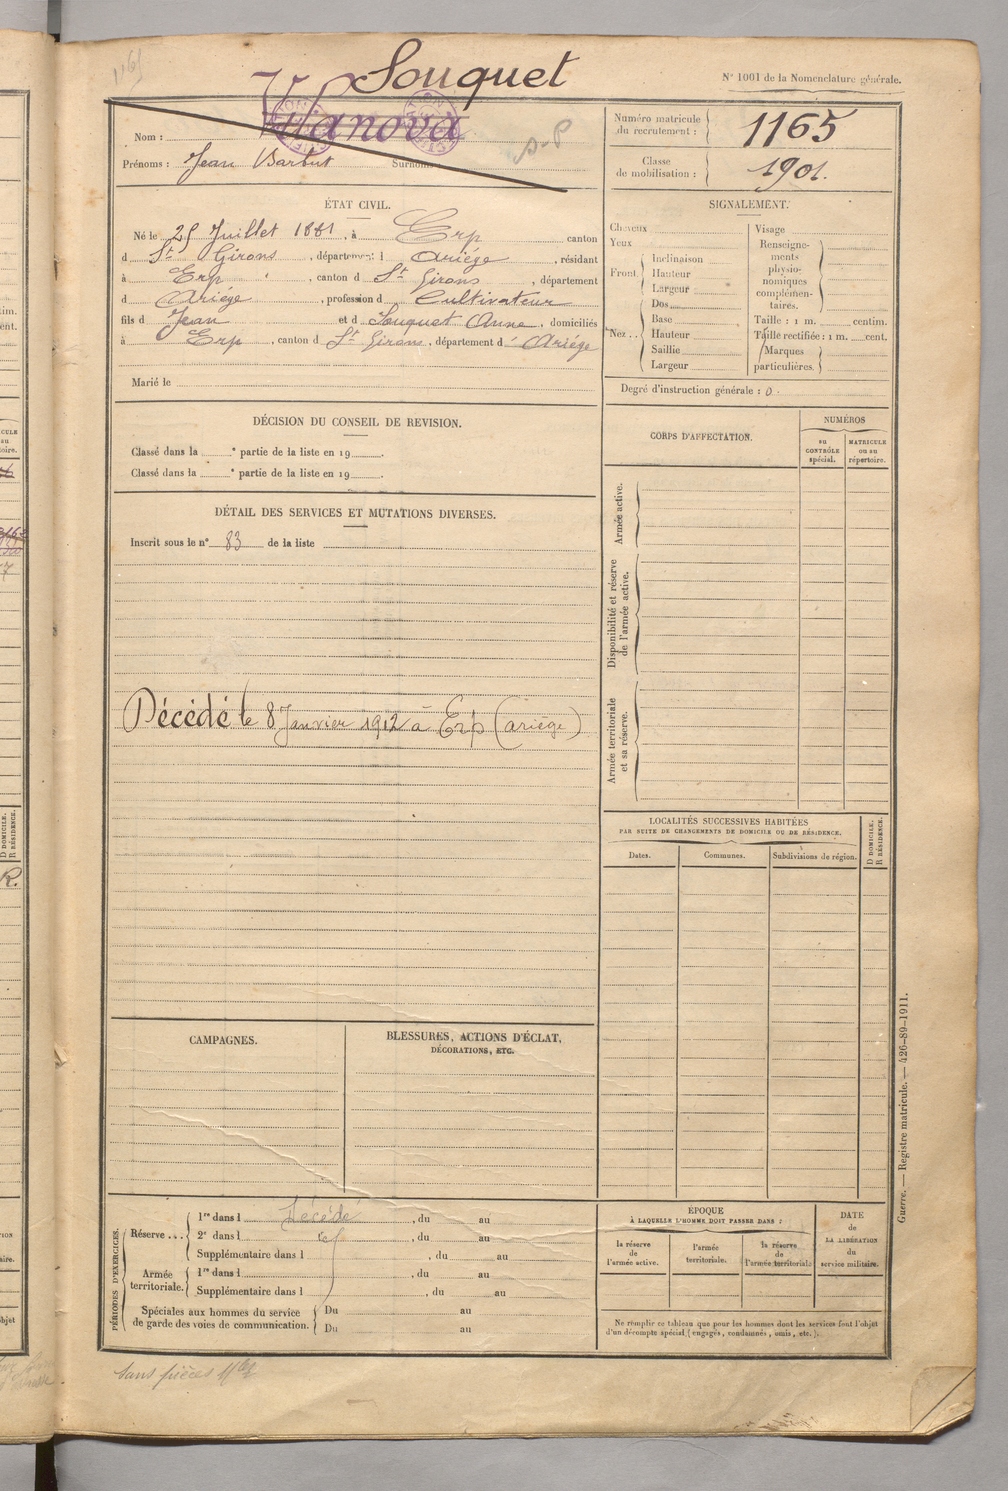 1165
Souquet
N° 1001 de la Nomenclature générale.
Nom : Vilanova
Prénoms : Jean Barbut Surnoms
S-P
Numéro matricule du recrutement : 1165
Classe de mobilisation : 1901.
ÉTAT CIVIL.
Né le 25 Juillet 1881, à Erp canton
d St Girons, département d Ariége, résidant
à Erp, canton d St Girons, département
d Ariége, profession d Cultivateur
fils d Jean et d Souquet Anne, domiciliés
à Erp, canton d St Girons, département d Ariége
Marié le
SIGNALEMENT.
Cheveux
Yeux
Front Inclinaison
Hauteur
Largeur
Nez.. Dos
Base
Hauteur
Saillie
Largeur
Visage
Renseigne-
ments
physio-
nomiques
complémen-
taires.
Taille : 1 m. centim.
Taille rectifiée : 1 m. cent.
Marques
particulières.
Degré d'instruction générale : 0.
DÉCISION DU CONSEIL DE REVISION.
Classé dans la e partie de la liste en 19 .
Classé dans la e partie de la liste en 19 .
DÉTAIL DES SERVICES ET MUTATIONS DIVERSES.
Inscrit sous le n° 83 de la liste
Décédé le 8 Janvier 1912 à Erp (ariège)
CORPS D'AFFECTATION.
NUMÉROS
au
CONTRÔLE
spécial.
MATRICULE
ou au
répertoire.
Armée active.
Disponibilité et réserve
de l'armée active.
Armée territoriale
et sa réserve.
LOCALITÉS SUCCESSIVES HABITÉES
PAR SUITE DE CHANGEMENTS DE DOMICILE OU DE RÉSIDENCE.
Dates.
Communes.
Subdivisions de région.
D DOMICILE.
R RÉSIDENCE.
CAMPAGNES.
BLESSURES, ACTIONS D'ÉCLAT,
DÉCORATIONS, ETC.
PÉRIODES D'EXERCICES.
Réserve... 1re dans l Décédé, du au
2e dans l , du au
Supplémentaire dans l , du au
Armée
territoriale. 1re dans l , du au
Supplémentaire dans l , du au
Spéciales aux hommes du service
de garde des voies de communication. Du au
Du au
ÉPOQUE
À LAQUELLE L'HOMME DOIT PASSER DANS :
la réserve
de
l'armée active.
l'armée
territoriale.
la réserve
de
l'armée territoriale
DATE
de
LA LIBÉRATION
du
service militaire.
Ne remplir ce tableau que pour les hommes dont les services font l'objet
d'un décompte spécial (engagés, condamnés, omis, etc.).
Guerre. — Registre matricule. — 426-89-1911.
sans pièces